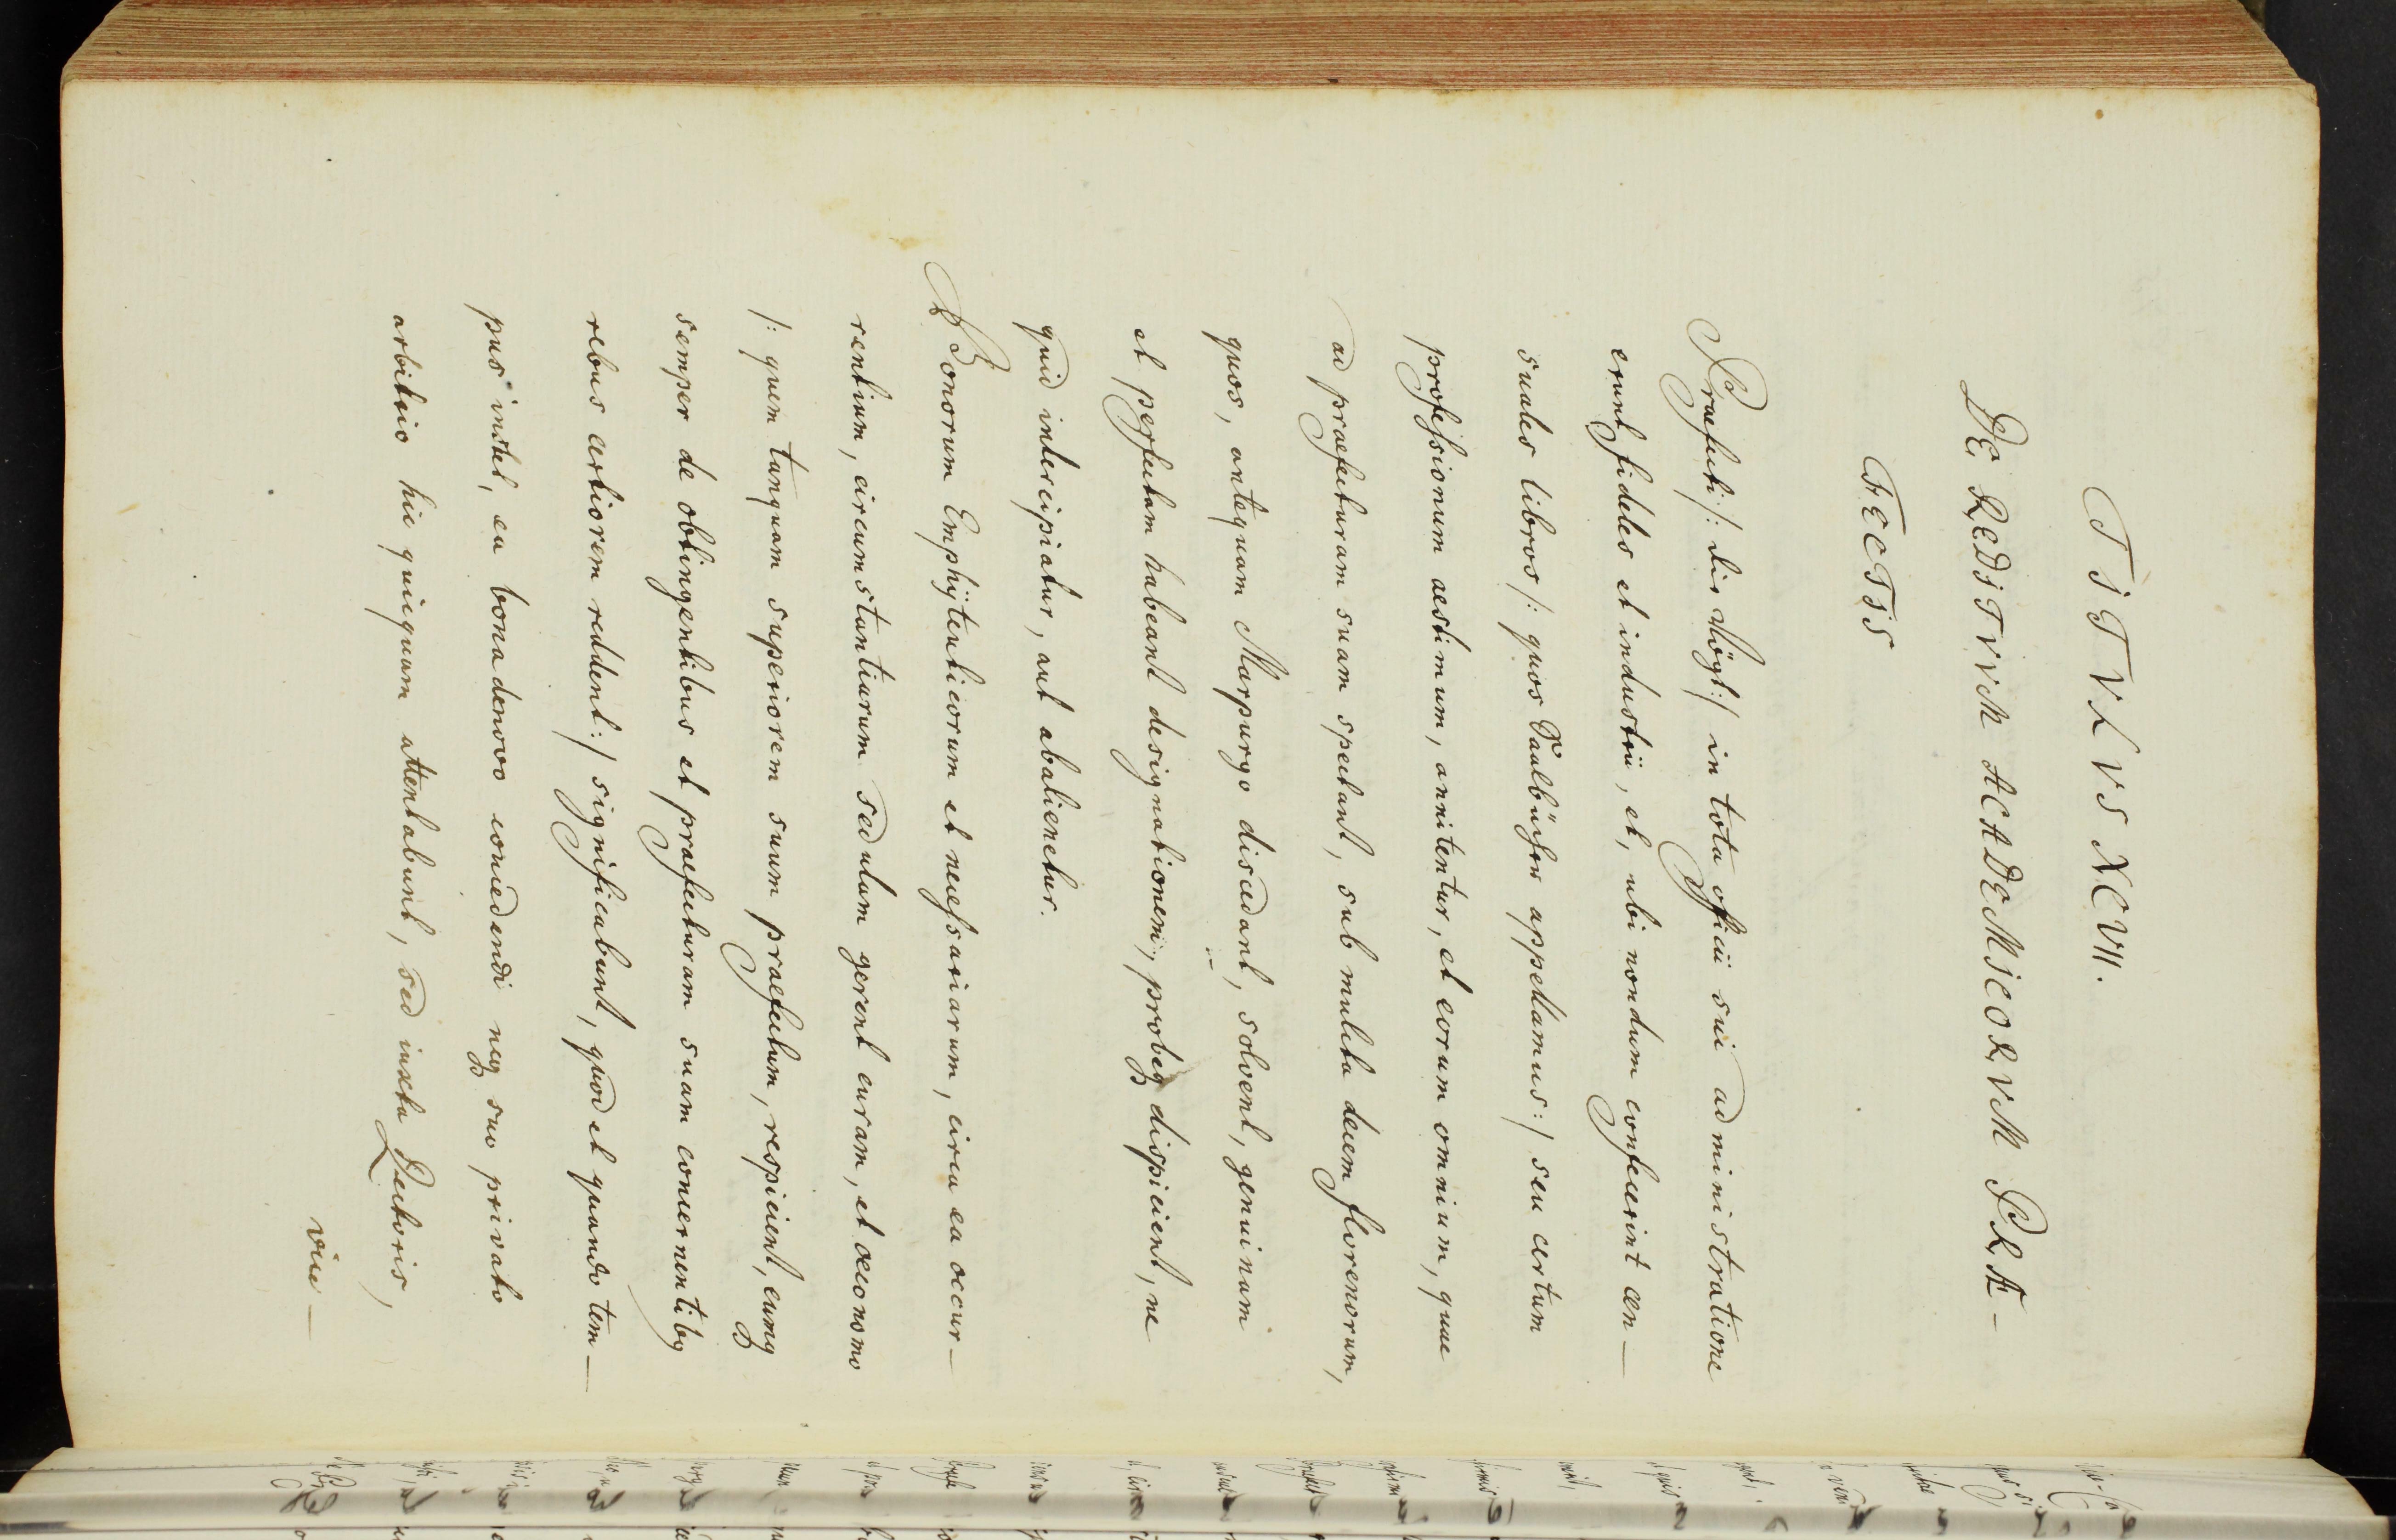 TITVLVS XCVII.
DE REDITVVM ACADEMICORVM PRAE-
FECTIS
Praefecti /: die Vögt :/ in tota officii sui administratione
erunt fideles et industrii, et, ubi nondum confecerint cen-
suales libros /: quos Saalbücher appellamus :/ seu certum
professionum aestimum, annitentur, et eorum omnium, quae
ad praefecturam suam spectant, sub mulcta decem florenorum,
quos, antequam Marpurgo discedant, solvent, genuinam
et perfectam habeant designationem, probeq dispicient, ne
quid intercipiatur, aut abalienetur.
Bonorum Emphÿteuticorum et necessariarum, circa ea occur-
rentium, circumstantiarum sedulam gerent curam, et oeconomo
/: quem tanquam superiorem suum praefectum, respicient, eumq
semper de obtingentibus et praefecturam suam concernentibq
rebus certiorem reddent :/ significabunt, quod et quando tem-
pus instet, ea bona denovo concedendi neq suo privato
arbitrio hic quicquam attentabunt, sed iuxta Rectoris,
vice-